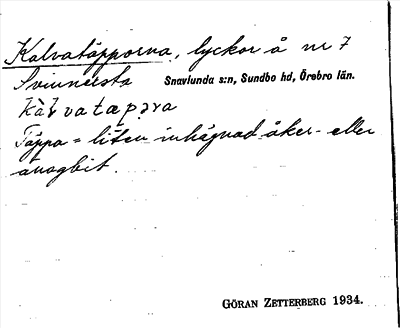 Kalvatäpporna, lyckor å nr 7
Svinnersta Snavlunda s:n, Sundbo hd, Örebro län.
kalvatæpəra
Täppa = liten inhägnad åker- eller
ängbit.
GÖRAN ZETTERBERG 1934.